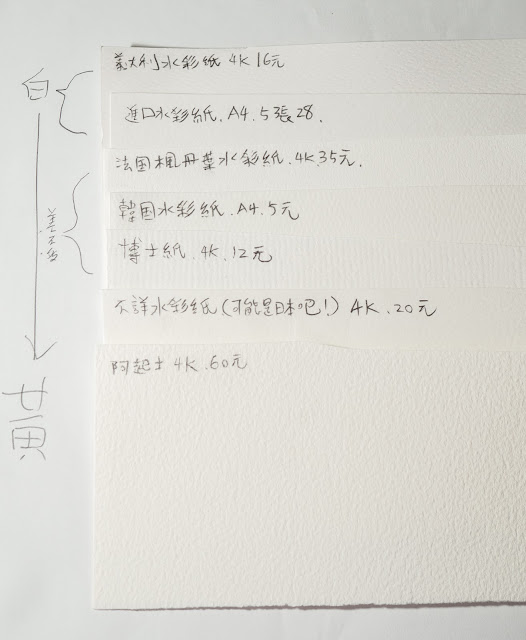 白
義大利水彩紙 4K 16元
進口水彩紙.A4.5張28.
法国楓丹葉水彩紙.4K.35元.
差不多
韓国水彩紙.A4.5元
博士紙.4K.12元
不詳水彩紙(可能是日本吧!) 4K.20元
阿起士 4K.60元
黃